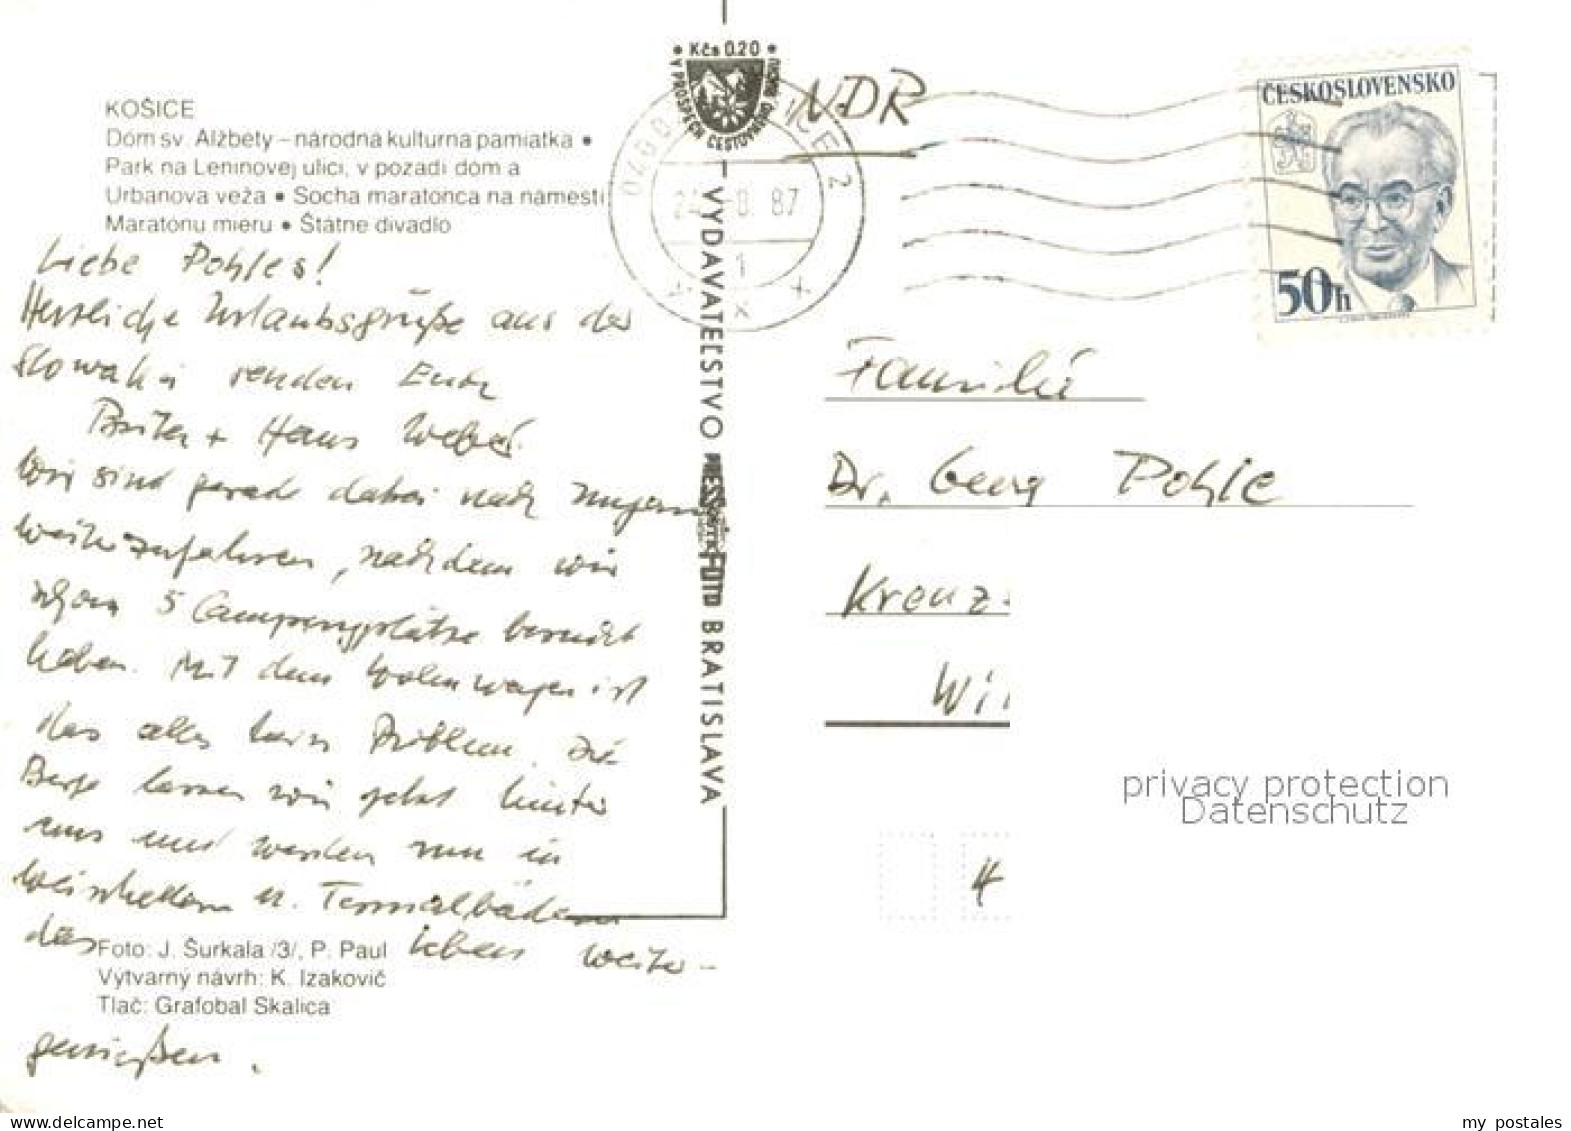 Kčs 0.20
V PROSPECH CESTOVNÉHO RUCHU
KOŠICE
Dóm sv. Alžbety – národná kultúrna pamiatka •
Park na Leninovej ulici, v pozadí dóm a
Urbanova veža • Socha maratónca na námestí
Maratónu mieru • Štátne divadlo
Liebe Pohles!
Herzliche Urlaubsgrüße aus der
Slowakei senden Euch
Britta + Hans Weber
Wir sind gerade dabei nach Ungarn
weiterzufahren, nachdem wir
schon 5 Campingplätze besucht
haben. Mit dem Wohnwagen ist
das alles kein Problem. Die
Berge lassen wir jetzt hinter
uns und werden nun in
Weinkellern u. Termalbädern
das Leben weiter-
genießen.
Foto: J. Šurkala /3/, P. Paul
Výtvarný návrh: K. Izakovič
Tlač: Grafobal Skalica
VYDAVATEĽSTVO PRESSFOTO BRATISLAVA
87
1
NDR
ČESKOSLOVENSKO
50h
Familie
Dr. Georg Pohle
Kreuz
Wi
4
privacy protection
Datenschutz
www.delcampe.net
my_postales